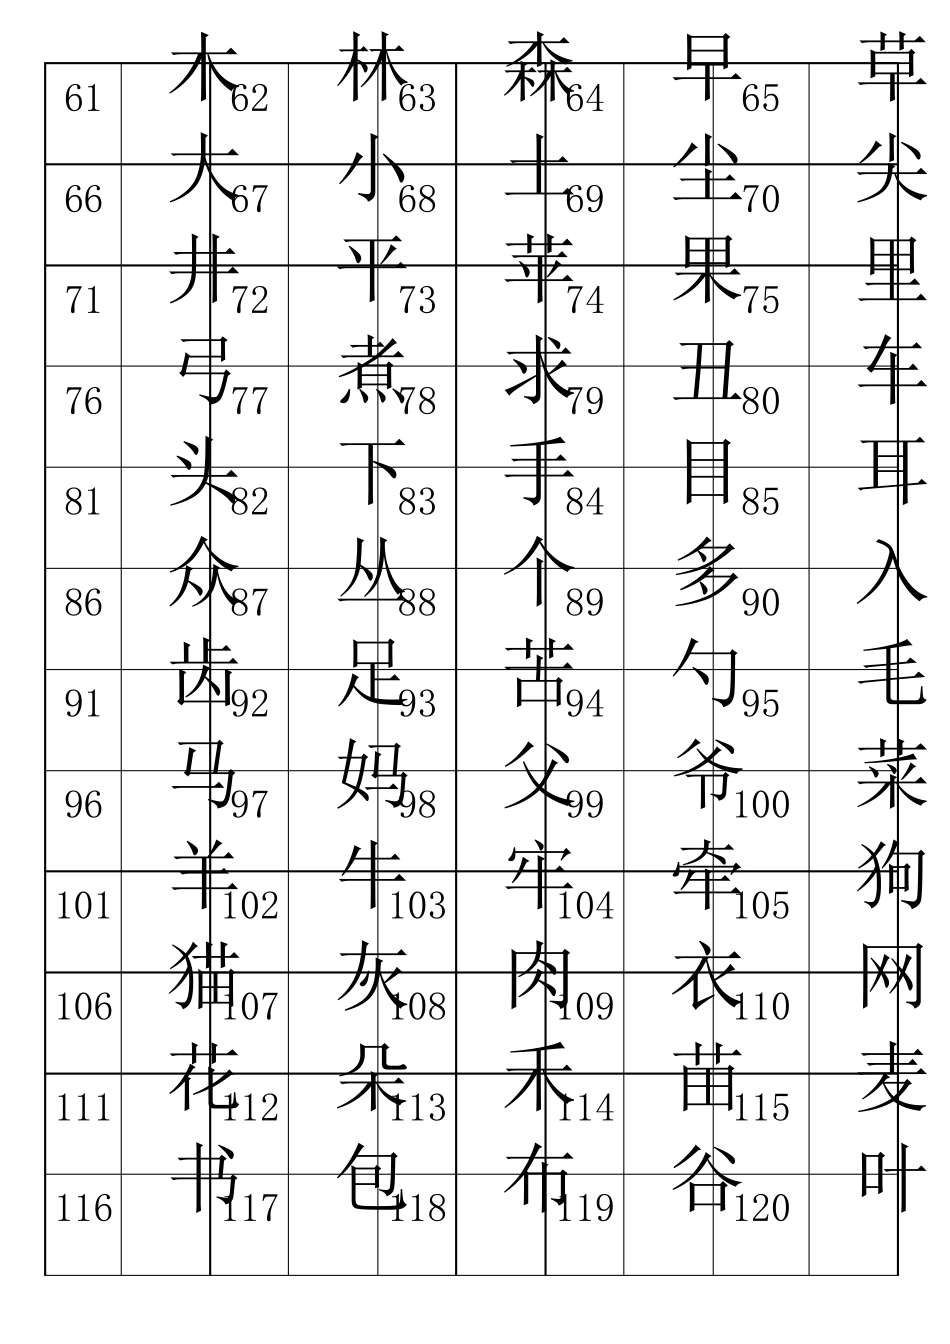 61 木 62 林 63 森 64 早 65 草
66 大 67 小 68 土 69 尘 70 尖
71 井 72 平 73 苹 74 果 75 里
76 弓 77 煮 78 求 79 丑 80 车
81 头 82 下 83 手 84 目 85 耳
86 众 87 丛 88 个 89 多 90 入
91 齿 92 足 93 苦 94 勺 95 毛
96 马 97 妈 98 父 99 爷 100 菜
101 羊 102 牛 103 牢 104 牵 105 狗
106 猫 107 灰 108 肉 109 衣 110 网
111 花 112 朵 113 禾 114 苗 115 麦
116 书 117 包 118 布 119 谷 120 叶